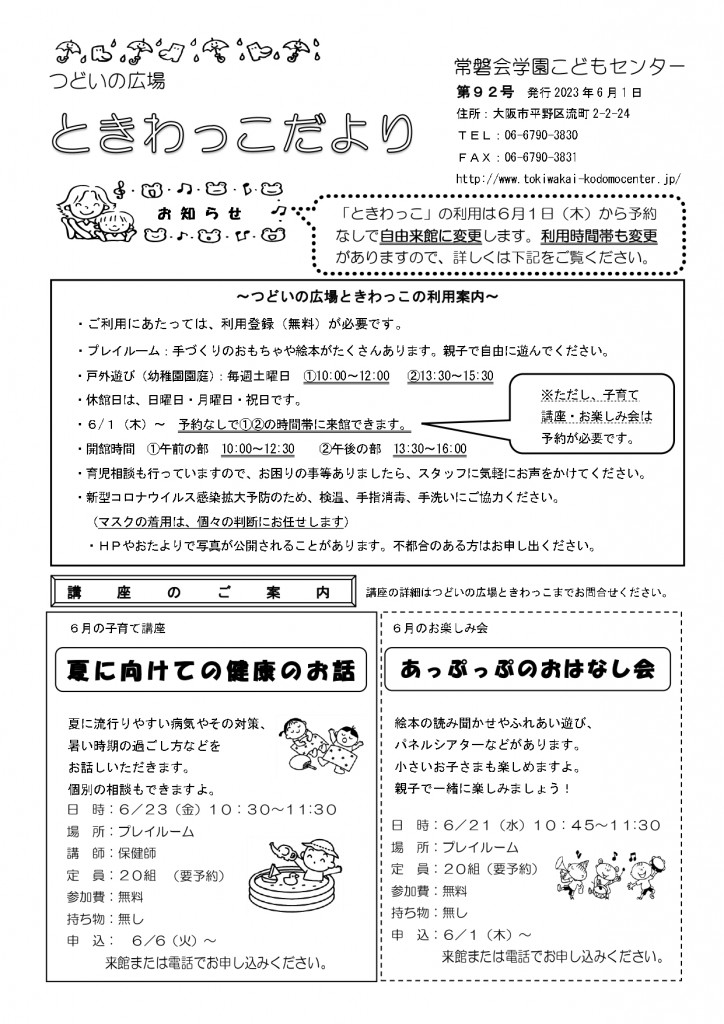 つどいの広場
ときわっこだより
常磐会学園こどもセンター
第９２号　発行2023年６月１日
住所：大阪市平野区流町2-2-24
ＴＥＬ：06-6790-3830
ＦＡＸ：06-6790-3831
http://www.tokiwakai-kodomocenter.jp/
お知らせ
「ときわっこ」の利用は６月１日（木）から予約
なしで自由来館に変更します。利用時間帯も変更
がありますので、詳しくは下記をご覧ください。
～つどいの広場ときわっこの利用案内～
・ご利用にあたっては、利用登録（無料）が必要です。
・プレイルーム：手づくりのおもちゃや絵本がたくさんあります。親子で自由に遊んでください。
・戸外遊び（幼稚園園庭）：毎週土曜日　①10:00～12:00　②13:30～15:30
・休館日は、日曜日・月曜日・祝日です。
・６/１（木）～　予約なしで①②の時間帯に来館できます。
・開館時間　①午前の部　10:00～12:30　　②午後の部　13:30～16:00
※ただし、子育て
講座・お楽しみ会は
予約が必要です。
・育児相談も行っていますので、お困りの事等ありましたら、スタッフに気軽にお声をかけてください。
・新型コロナウイルス感染拡大予防のため、検温、手指消毒、手洗いにご協力ください。
（マスクの着用は、個々の判断にお任せします）
・ＨＰやおたよりで写真が公開されることがあります。不都合のある方はお申し出ください。
講座のご案内
講座の詳細はつどいの広場ときわっこまでお問合せください。
６月の子育て講座
夏に向けての健康のお話
夏に流行りやすい病気やその対策、
暑い時期の過ごし方などを
お話しいただきます。
個別の相談もできますよ。
日　時：６／２３（金）１０：３０～１１：３０
場　所：プレイルーム
講　師：保健師
定　員：２０組　（要予約）
参加費：無料
持ち物：無し
申　込：　６／６（火）～
来館または電話でお申し込みください。
６月のお楽しみ会
あっぷっぷのおはなし会
絵本の読み聞かせやふれあい遊び、
パネルシアターなどがあります。
小さいお子さまも楽しめますよ。
親子で一緒に楽しみましょう！
日　時：６／２１（水）１０：４５～１１：３０
場　所：プレイルーム
定　員：２０組（要予約）
参加費：無料
持ち物：無し
申　込：６／１（木）～
来館または電話でお申し込みください。